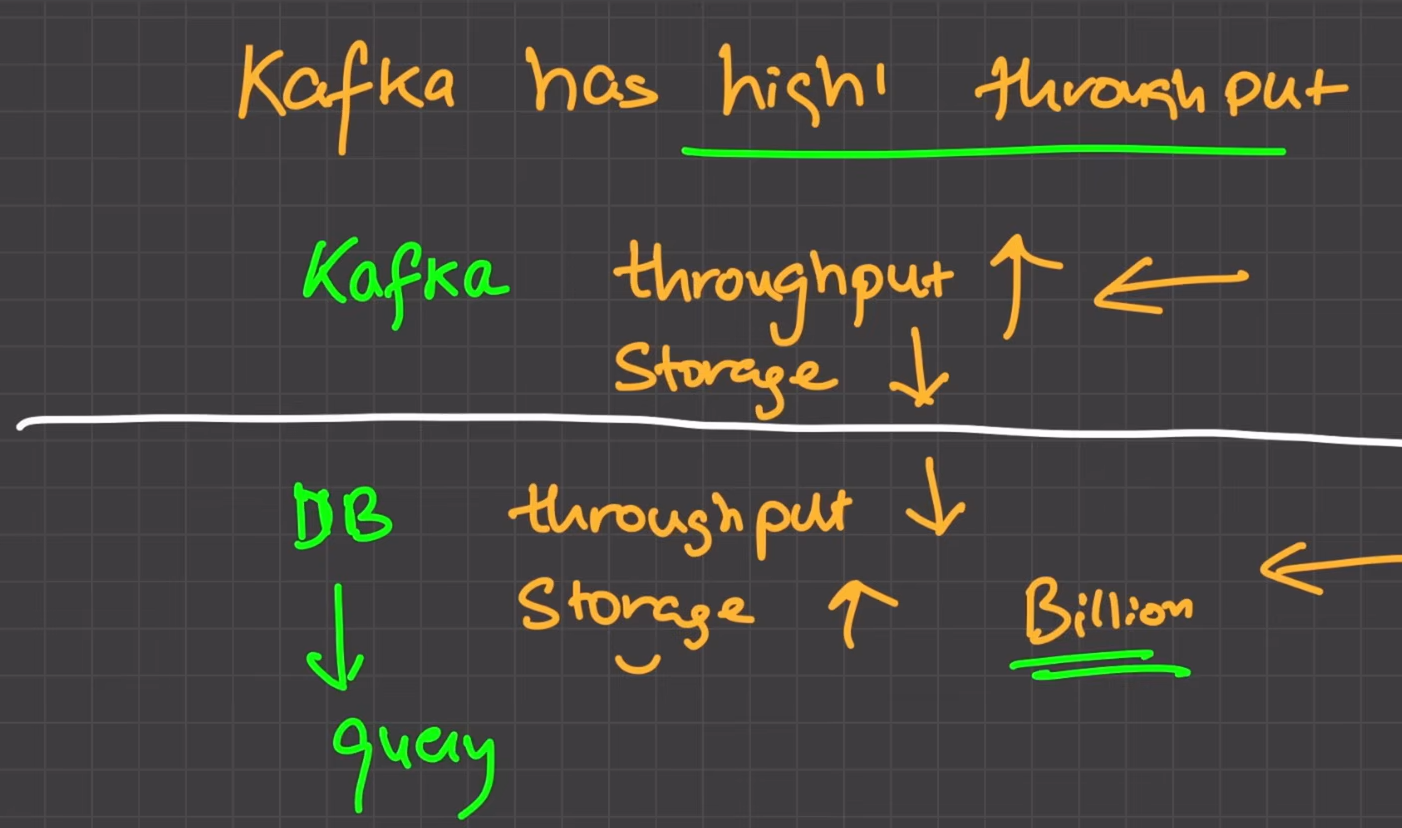 Kafka has high throughput
Kafka throughput ↑ ←
Storage ↓
DB throughput ↓
Storage ↑ Billion ←
↓
query